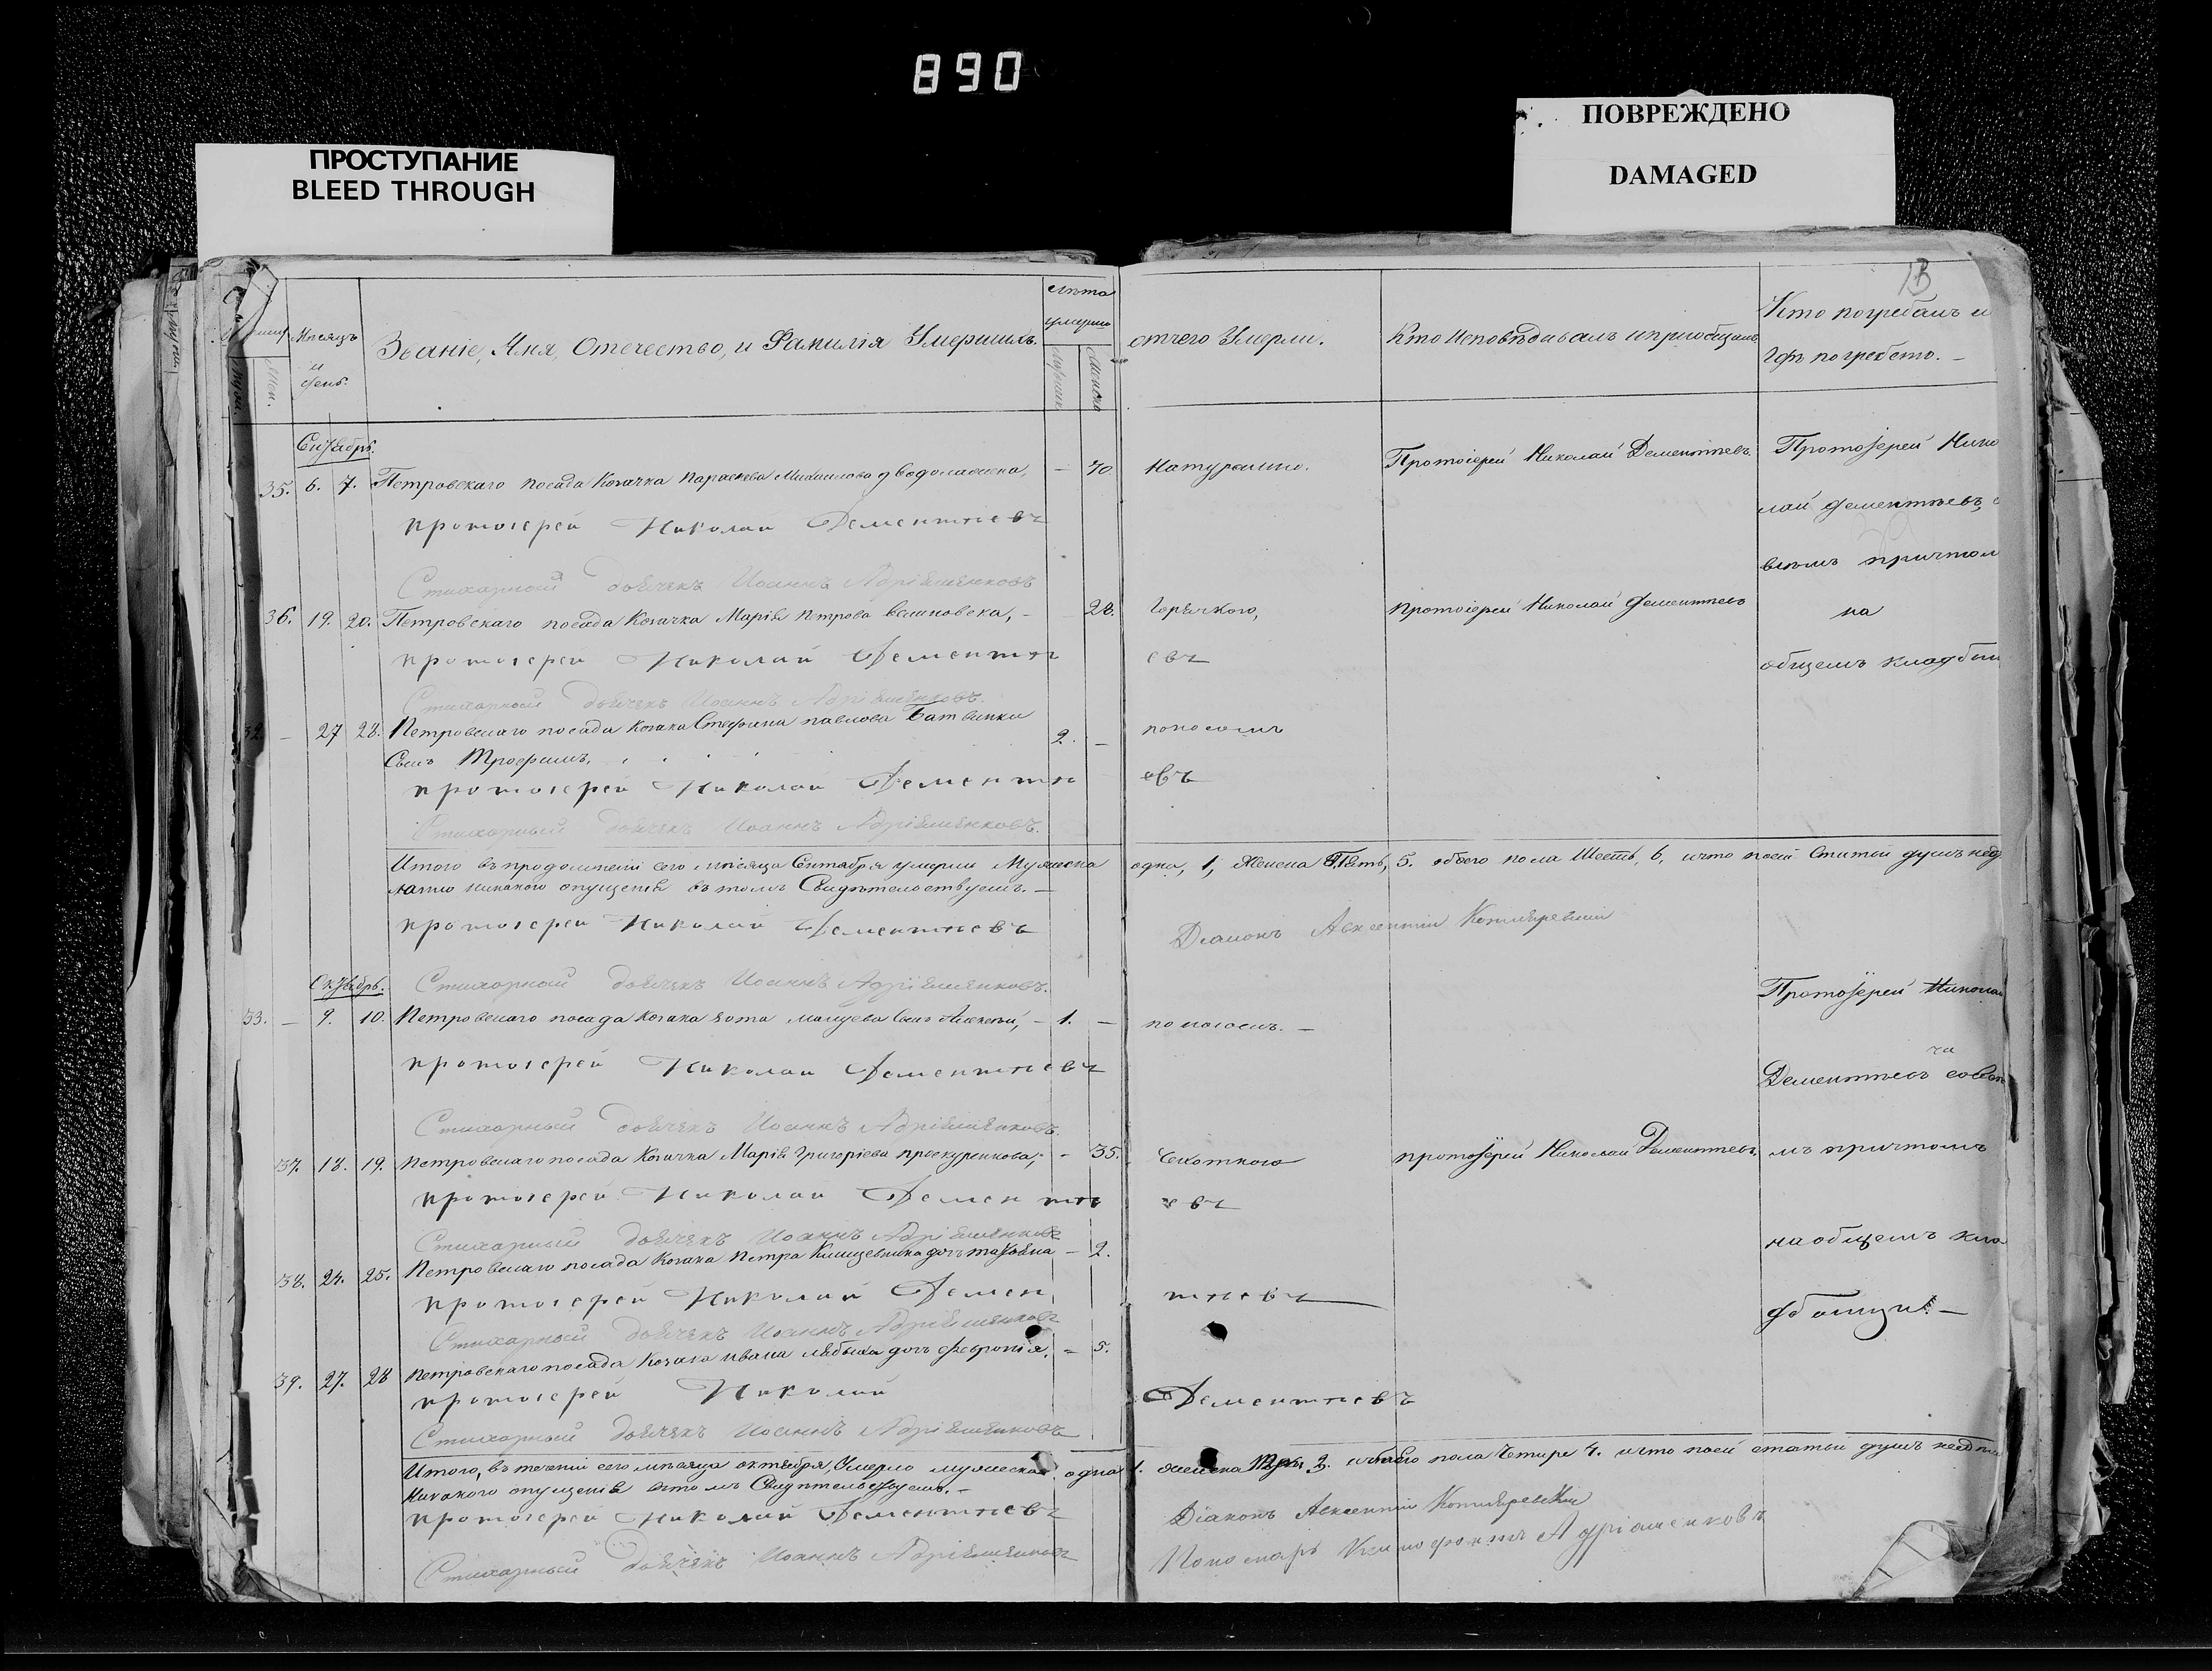 890
ПРОСТУПАНИЕ
BLEED THROUGH
ПОВРЕЖДЕНО
DAMAGED
13
Мѣсяцъ
и
день.
Званіе, Имя, Отечество, и Фамилія Умершихъ.
Лѣта
умерш
отчего Умерли.
Кто Исповѣдывалъ и пріобщалъ
Кто погребалъ и
гдѣ погребено. —
Сентябрь.
35. 6. 7. Петровскаго посада Козачка Параскева Михаилова — 70 Натурально. Протоіерей Николай Дементьевъ Протоіерей Нико
протоіерей Николай Дементіевъ
лай Дементьевъ, с
Стихарный дьячекъ Иоаннъ Адріяшенковъ
всѣмъ причтом
36. 19. 20. Петровскаго посада Козачка Марія Петрова — 28. Горячкою, протоіерей Николай Дементьевъ на
протоіерей Николай Дементіевъ
общемъ кладби
Стихарный дьячекъ Иоаннъ Адріяшенковъ.
32 — 27 28. Петровскаго посада Козака Стефана Павлова Батвинки
Сынъ Трофимъ, 2. — поносомъ
протоіерей Николай Дементіевъ
Стихарный дьячекъ Иоаннъ Адріяшенковъ.
Итого въ продолженіи сего мѣсяца Сентября умерли Мужеска одна, 1, Женска Пять, 5. обоего пола Шесть, 6, что по сей Статьи душъ нед
никакого опущенія въ томъ Свидѣтельствуемъ. —
протоіерей Николай Дементіевъ
Діаконъ Авксентій Котляревскій
Октябрь.
Стихарный дьячекъ Иоаннъ Адріяшенковъ.
Протоіерей Николай
33. — 9. 10. Петровскаго посада Козака Сынъ Алексѣй, — 1. — поносомъ. —
протоіерей Николай Дементіевъ
Дементьевъ
Стихарный дьячекъ Иоаннъ Адріяшенковъ.
37. 18. 19. Петровскаго посада Козачка Марія Григоріева Проскурникова, — 35. Чехоткою протоіерей Николай Дементьевъ, мъ причтомъ
протоіерей Николай Дементіевъ
Стихарный дьячекъ Иоаннъ Адріяшенковъ
на общемъ кла
38. 24. 25. Петровскаго посада Козака Петра дочь Татьяна — 2.
протоіерей Николай Дементіевъ
дбищи. —
Стихарный дьячекъ Иоаннъ Адріяшенковъ
39. 27. 28 Петровскаго посада Козака Ивана дочь Февронія. — 5.
протоіерей Николай Дементіевъ
Стихарный дьячекъ Иоаннъ Адріяшенковъ
Итого, въ теченіи сего мѣсяца октября, Умерло мужеска одна 1. женска Три, 3. обоего пола Четыре 4. что по сей статьи душъ
никакого опущенія въ томъ Свидѣтельствуемъ. —
протоіерей Николай Дементіевъ
Діаконъ Авксентій Котляревскій
Стихарный дьячекъ Иоаннъ Адріяшенковъ
Пономарь Ксенофонтъ Адріашенковъ